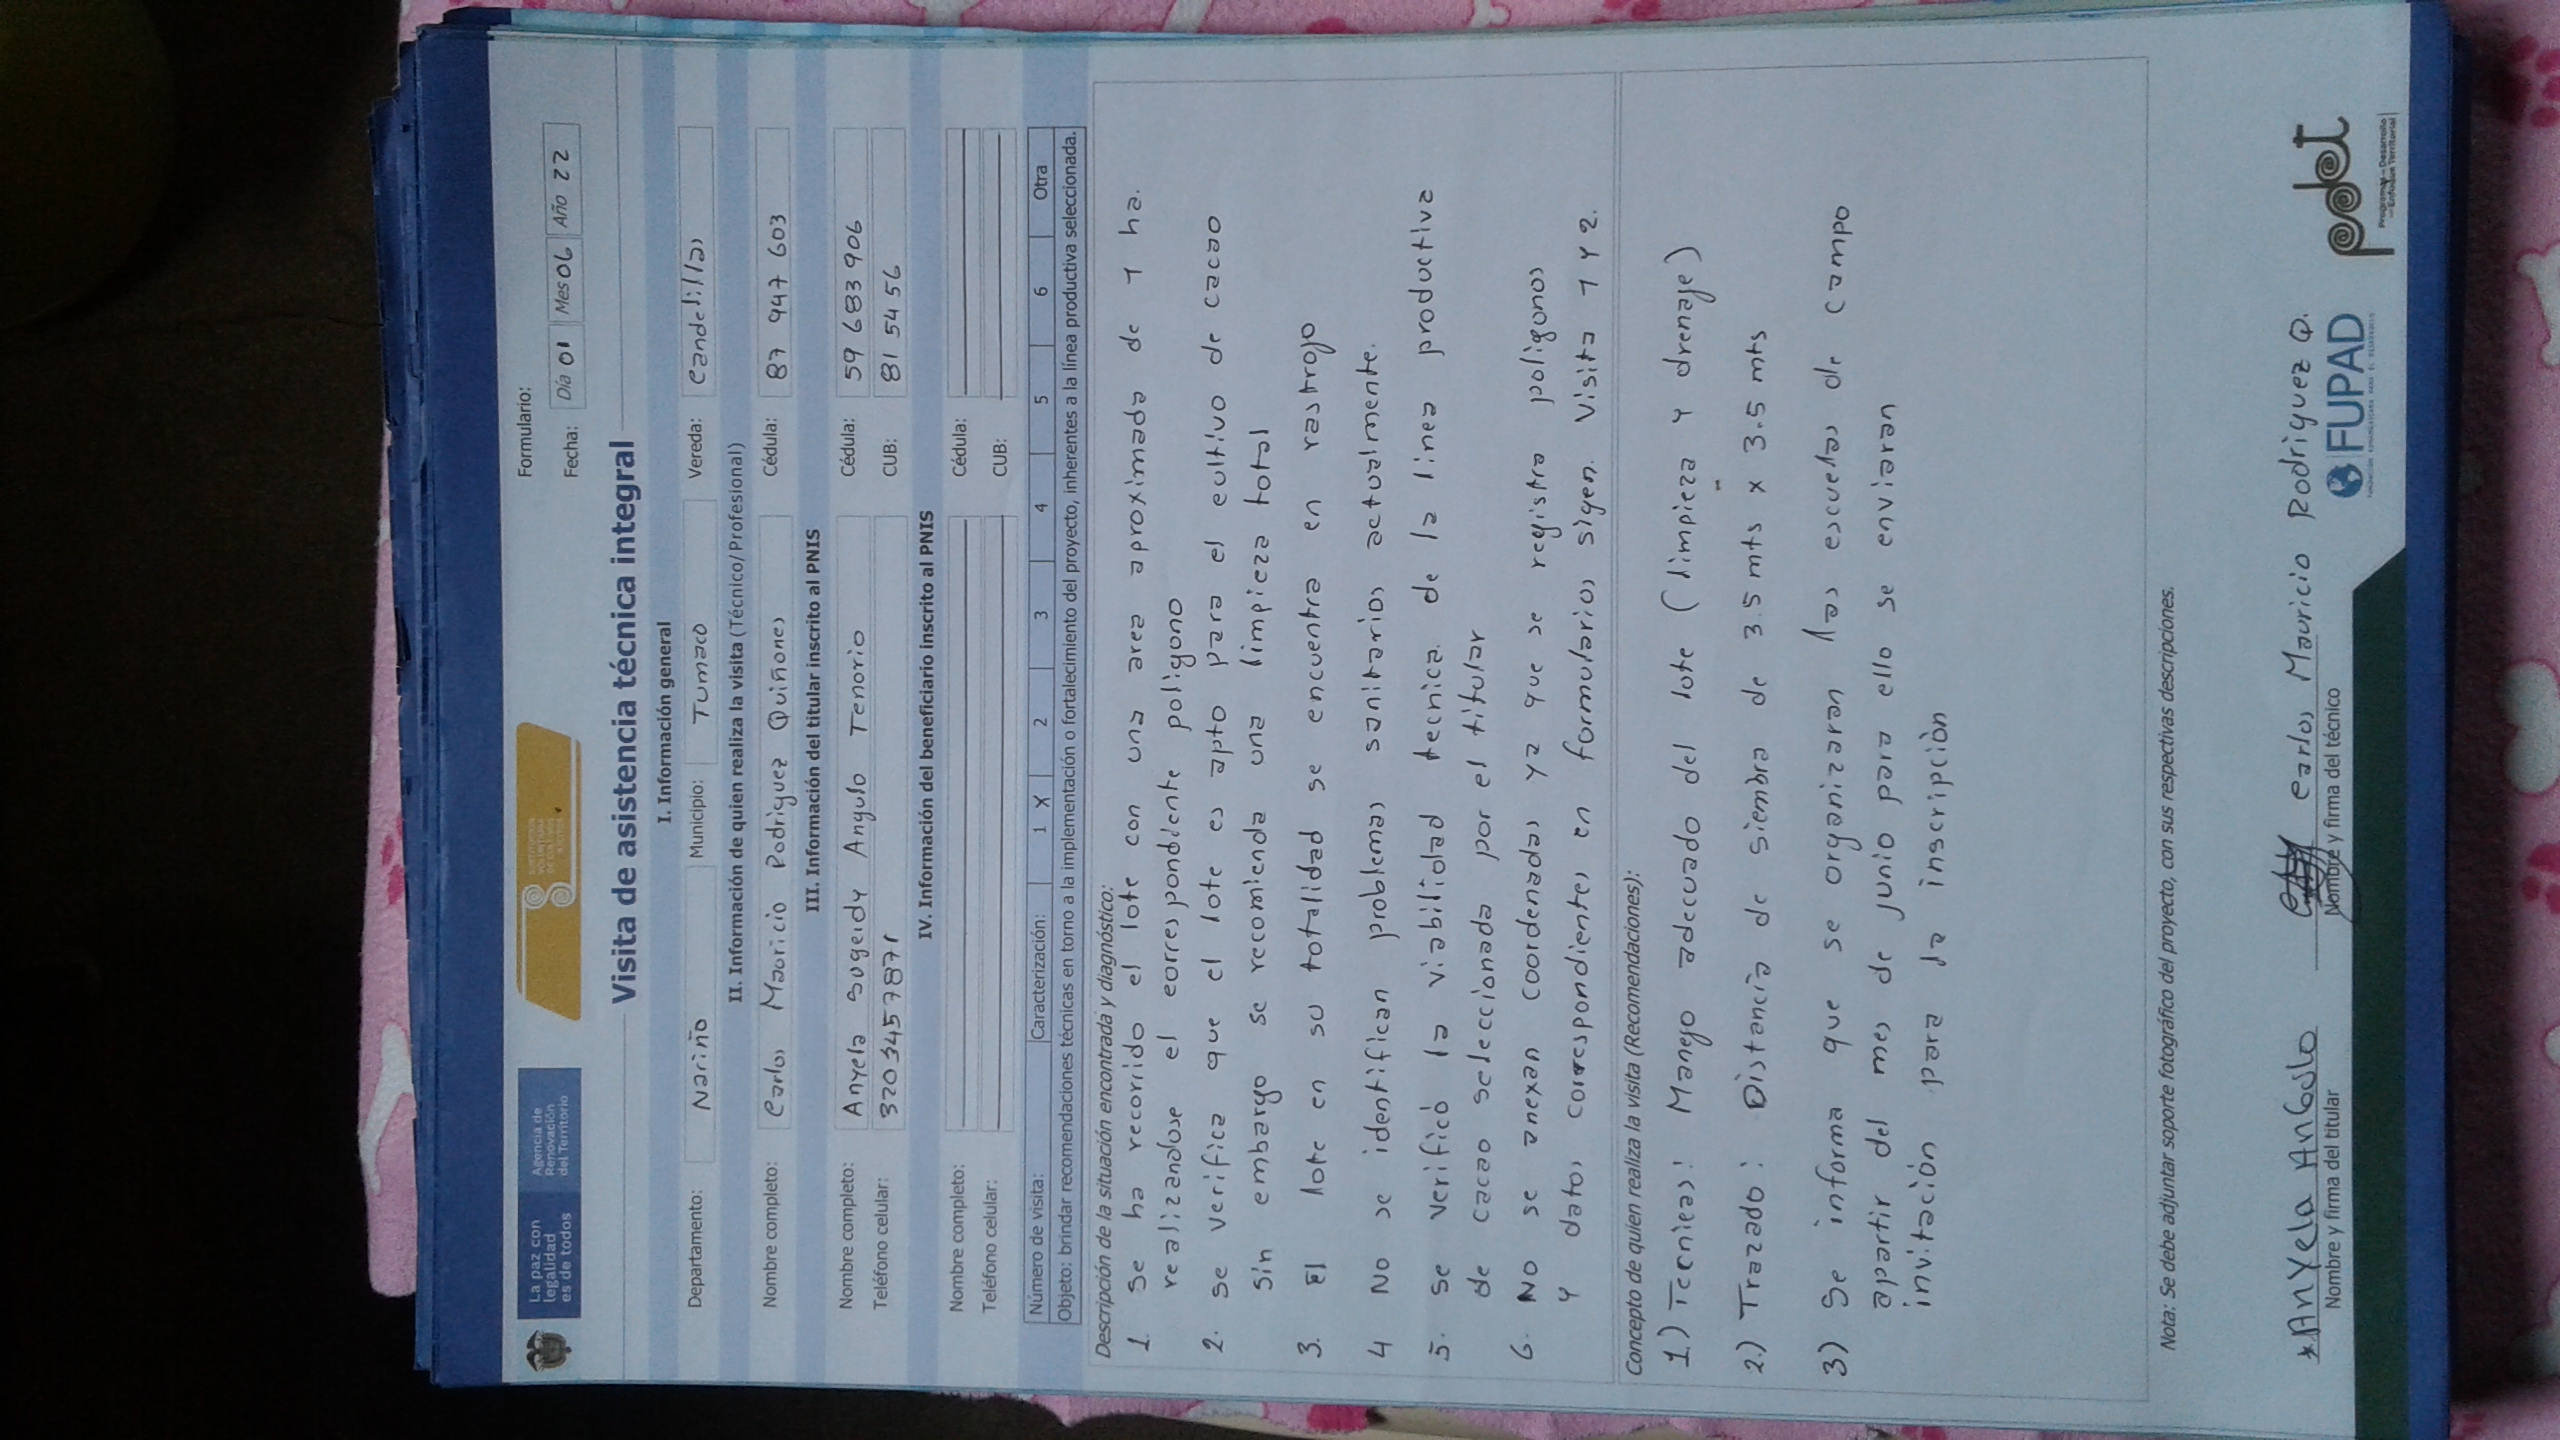 La paz con
legalidad
es de todos
Agencia de
Renovación
del Territorio
SUSTITUCIÓN
VOLUNTARIA
DE CULTIVOS
ILÍCITOS
Formulario:
Fecha: Día 01 Mes 06 Año 22
Visita de asistencia técnica integral
I. Información general
Departamento: Nariño Municipio: Tumaco Vereda: Candelillas
II. Información de quien realiza la visita (Técnico/Profesional)
Nombre completo: Carlos Mauricio Rodriguez Quiñones Cédula: 87 947 603
III. Información del titular inscrito al PNIS
Nombre completo: Anyela Sugeidy Angulo Tenorio Cédula: 59 683 906
Teléfono celular: 3203457871 CUB: 81 54 56
IV. Información del beneficiario inscrito al PNIS
Nombre completo: Cédula:
Teléfono celular: CUB:
Número de visita: Caracterización: 1 X 2 3 4 5 6 Otra
Objeto: brindar recomendaciones técnicas en torno a la implementación o fortalecimiento del proyecto, inherentes a la línea productiva seleccionada.
Descripción de la situación encontrada y diagnóstico:
1. Se ha recorrido el lote con una area aproximada de 1 ha.
realizandose el correspondiente poligono
2. se verifica que el lote es apto para el cultivo de cacao
sin embargo se recomienda una limpieza total
3. El lote en su totalidad se encuentra en rastrojo
4 No se identifican problemas sanitarios actualmente.
5. se verificó la viabilidad tecnica. de la linea productiva
de cacao seleccionada por el titular
6. No se anexan coordenadas ya que se registra poligonos
y datos correspondientes en formularios sigen. Visita 1 y 2.
Concepto de quien realiza la visita (Recomendaciones):
1.) Tecnicas: Manejo adecuado del lote (limpieza y drenaje)
2.) Trazado: Distancia de siembra de 3.5 mts x 3.5 mts
3) Se informa que se organizaran las escuelas de campo
apartir del mes de junio para ello se enviaran
invitación para la inscripción
Nota: Se debe adjuntar soporte fotográfico del proyecto, con sus respectivas descripciones.
*Anyela Angulo
Nombre y firma del titular
Carlos Mauricio Rodriguez Q.
Nombre y firma del técnico
FUPAD
pdet
Programas de Desarrollo
con Enfoque Territorial